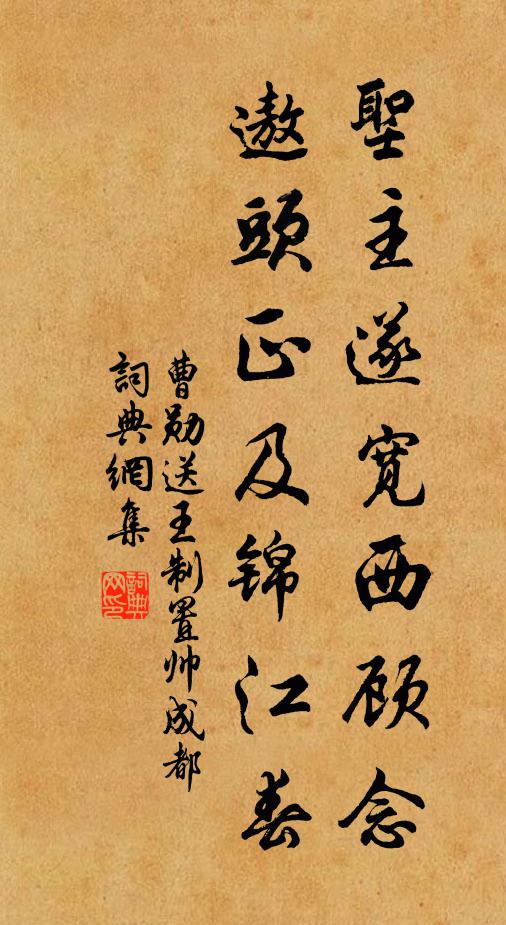 聖主遂寬西顾念
遨頭正及锦江春
曹勋送王制置帅成都
詞典網集
詞典网印